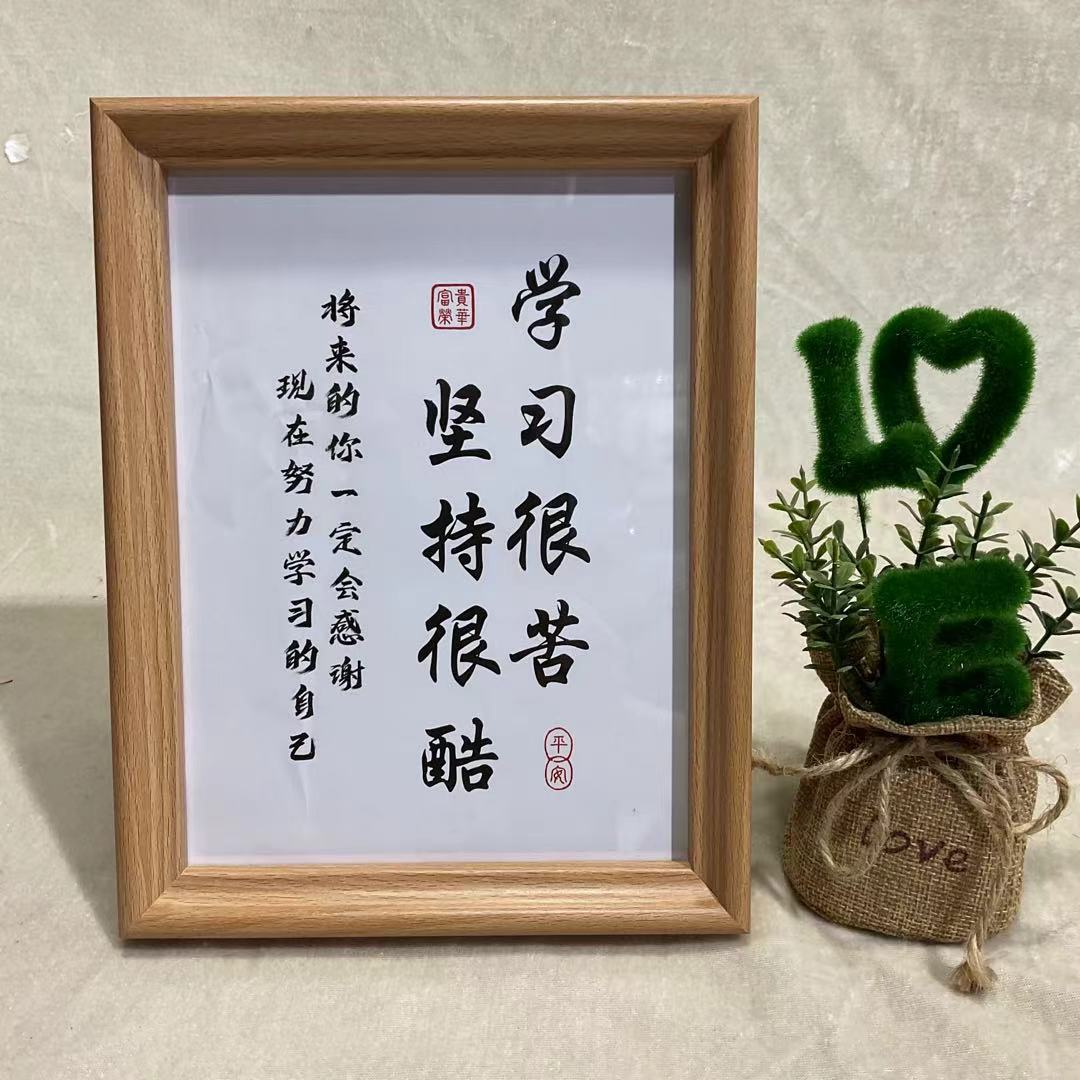 学习很苦
平安
富貴
榮華
坚持很酷
将来的你一定会感谢
现在努力学习的自己
L
E
love